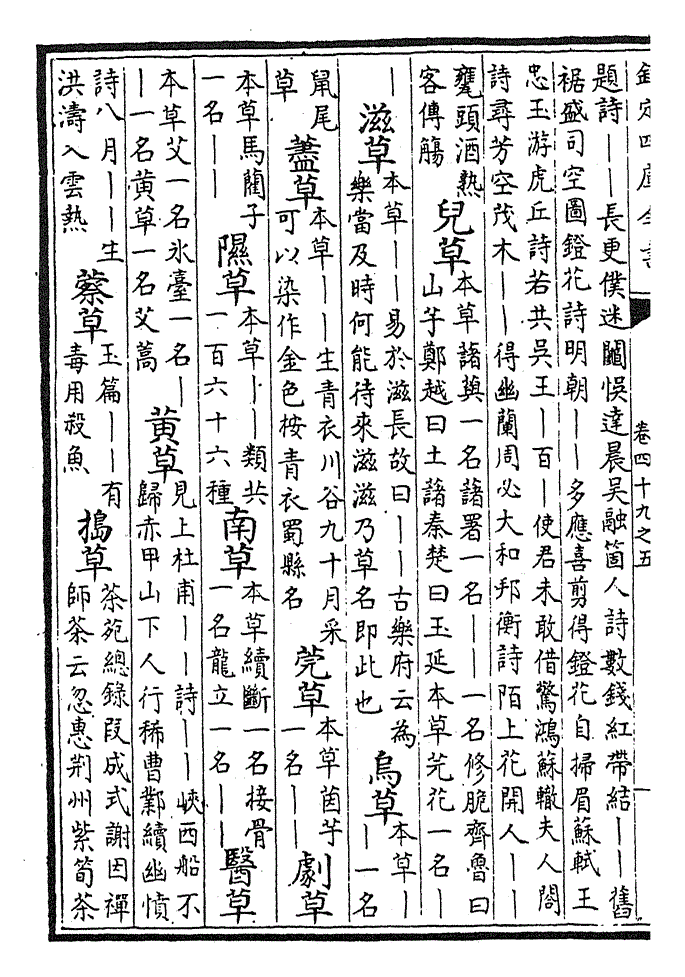 欽定四庫全書 卷四十九之五
題詩丨丨長更僕迷闢悞達晨吳融箇人詩數錢紅帶結丨丨舊
裾盛司空圖鐙花詩明朝丨丨多應喜剪得鐙花自掃眉蘇軾王
忠玉游虎丘詩若共吳王丨百丨使君未敢借驚鴻蘇轍夫人閤
詩尋芳空茂木丨丨得幽蘭周必大和邦衡詩陌上花開人丨丨
甕頭酒熟
客傳觴
兒草
本草諸萸一名諸署一名丨丨一名修脆齊魯曰
山芋鄭越曰土諸秦楚曰玉延本草芫花一名丨
丨
滋草
本草丨丨易於滋長故曰丨丨古樂府云為
樂當及時何能待來滋滋乃草名即此也
烏草
本草丨
丨一名
鼠尾
草
藎草
本草丨丨生青衣川谷九十月采
可以染作金色桉青衣蜀縣名
莞草
本草茵芋
一名丨丨
劇草
本草馬藺子
一名丨丨
隰草
本草丨丨類共
一百六十六種
南草
本草續斷一名接骨
一名龍立一名丨丨
醫草
本草艾一名氷臺一名丨
丨一名黄草一名艾蒿
黄草
見上杜甫丨丨詩丨丨峽西船不
歸赤甲山下人行稀曹鄴續幽憤
詩八月丨丨生
洪濤入雲熱
蔡草
玉篇丨丨有
毒用殺魚
搗草
茶苑總錄段成式謝因禪
師茶云忽惠荆州紫筍茶